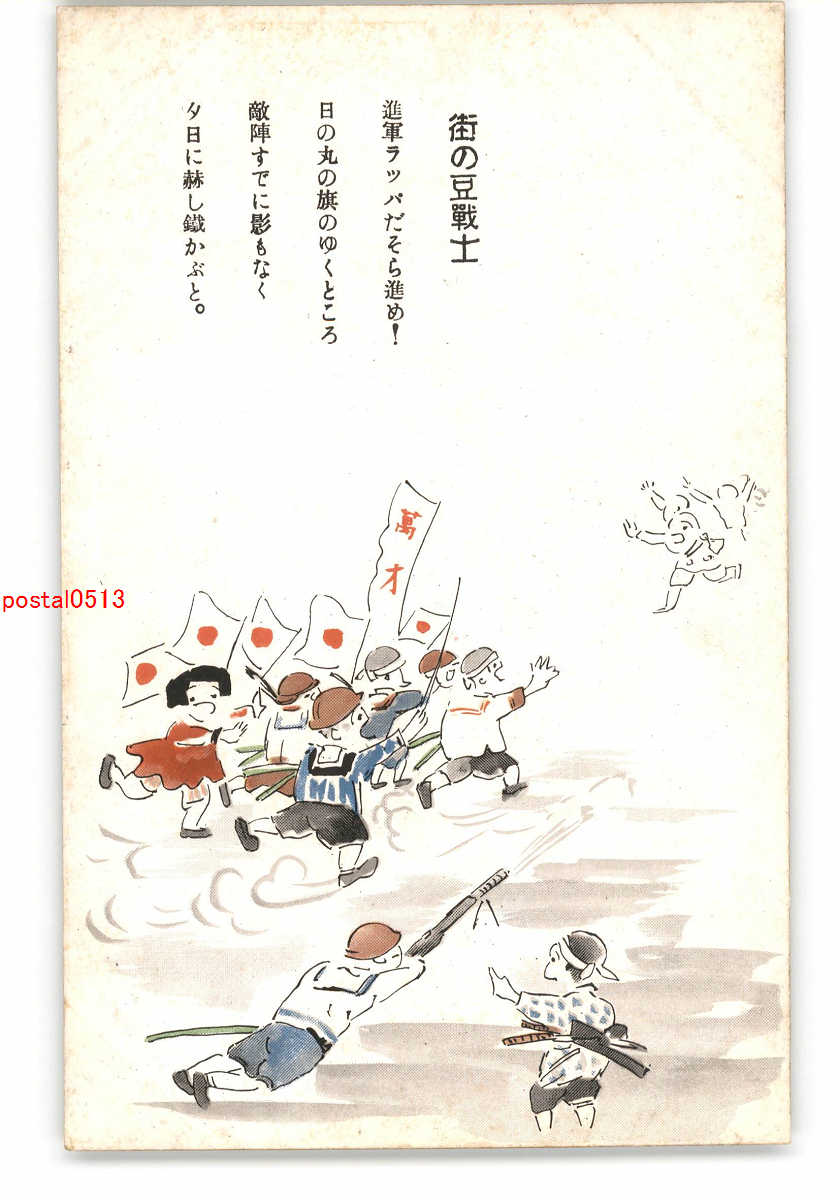 街の豆戰士
進軍ラッパだそら進め！
日の丸の旗のゆくところ
敵陣すでに影もなく
夕日に赫し鐵かぶと。
萬才
postal0513